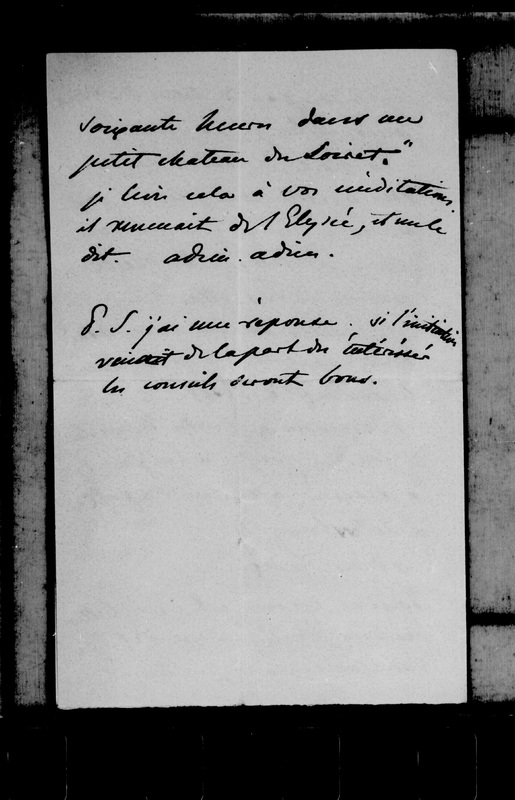 soixante heures dans un
petit chateau du Loiret."
je livre cela à vos méditations.
il revenait de l'Elysée, et me le
dit. adieu. adieu.
P. S. j'ai une réponse. si l'invitation
venait de la part des intéressés
les conseils seront bons.